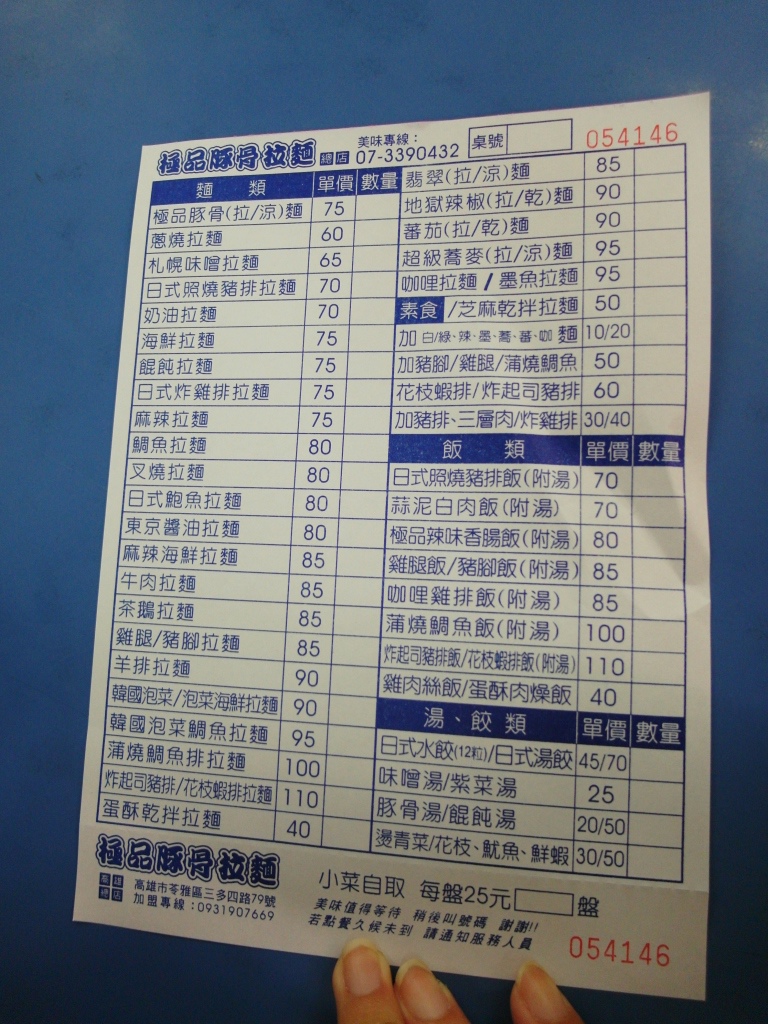 極品豚骨拉麵 總店 美味專線：07-3390432 桌號 054146
麵類 單價 數量
極品豚骨(拉/涼)麵 75
蔥燒拉麵 60
札幌味噌拉麵 65
日式照燒豬排拉麵 70
奶油拉麵 70
海鮮拉麵 75
餛飩拉麵 75
日式炸雞排拉麵 75
麻辣拉麵 75
鯛魚拉麵 80
叉燒拉麵 80
日式鮑魚拉麵 80
東京醬油拉麵 80
麻辣海鮮拉麵 85
牛肉拉麵 85
茶鵝拉麵 85
雞腿/豬腳拉麵 85
羊排拉麵 90
韓國泡菜/泡菜海鮮拉麵 90
韓國泡菜鯛魚拉麵 95
蒲燒鯛魚排拉麵 100
炸起司豬排/花枝蝦排拉麵 110
蛋酥乾拌拉麵 40
翡翠(拉/涼)麵 85
地獄辣椒(拉/乾)麵 90
蕃茄(拉/乾)麵 90
超級蕎麥(拉/涼)麵 95
咖哩拉麵/墨魚拉麵 95
素食/芝麻乾拌拉麵 50
加白/綠、辣、墨、蕎、蕃、咖麵 10/20
加豬腳/雞腿/蒲燒鯛魚 50
花枝蝦排/炸起司豬排 60
加豬排、三層肉/炸雞排 30/40
飯類 單價 數量
日式照燒豬排飯(附湯) 70
蒜泥白肉飯(附湯) 70
極品辣味香腸飯(附湯) 80
雞腿飯/豬腳飯(附湯) 85
咖哩雞排飯(附湯) 85
蒲燒鯛魚飯(附湯) 100
炸起司豬排飯/花枝蝦排飯(附湯) 110
雞肉絲飯/蛋酥肉燥飯 40
湯、餃類 單價 數量
日式水餃(12粒)/日式湯餃 45/70
味噌湯/紫菜湯 25
豚骨湯/餛飩湯 20/50
燙青菜/花枝、魷魚、鮮蝦 30/50
極品豚骨拉麵
高雄總店
高雄市苓雅區三多四路79號
加盟專線：0931907669
小菜自取 每盤25元 盤
美味值得等待 稍後叫號碼 謝謝!!
若點餐久候未到 請通知服務人員
054146